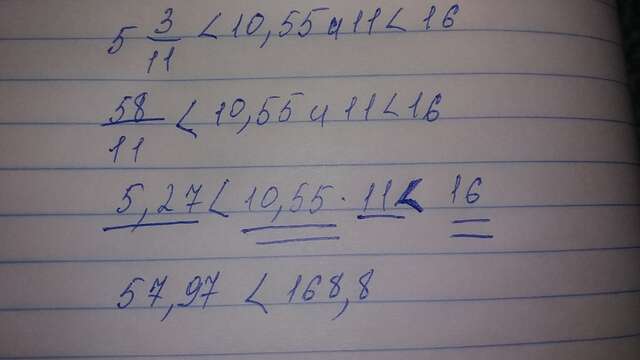 5 3/11 < 10,55 и 11 < 16
58/11 < 10,55 и 11 < 16
5,27 < 10,55 · 11 < 16
57,97 < 168,8